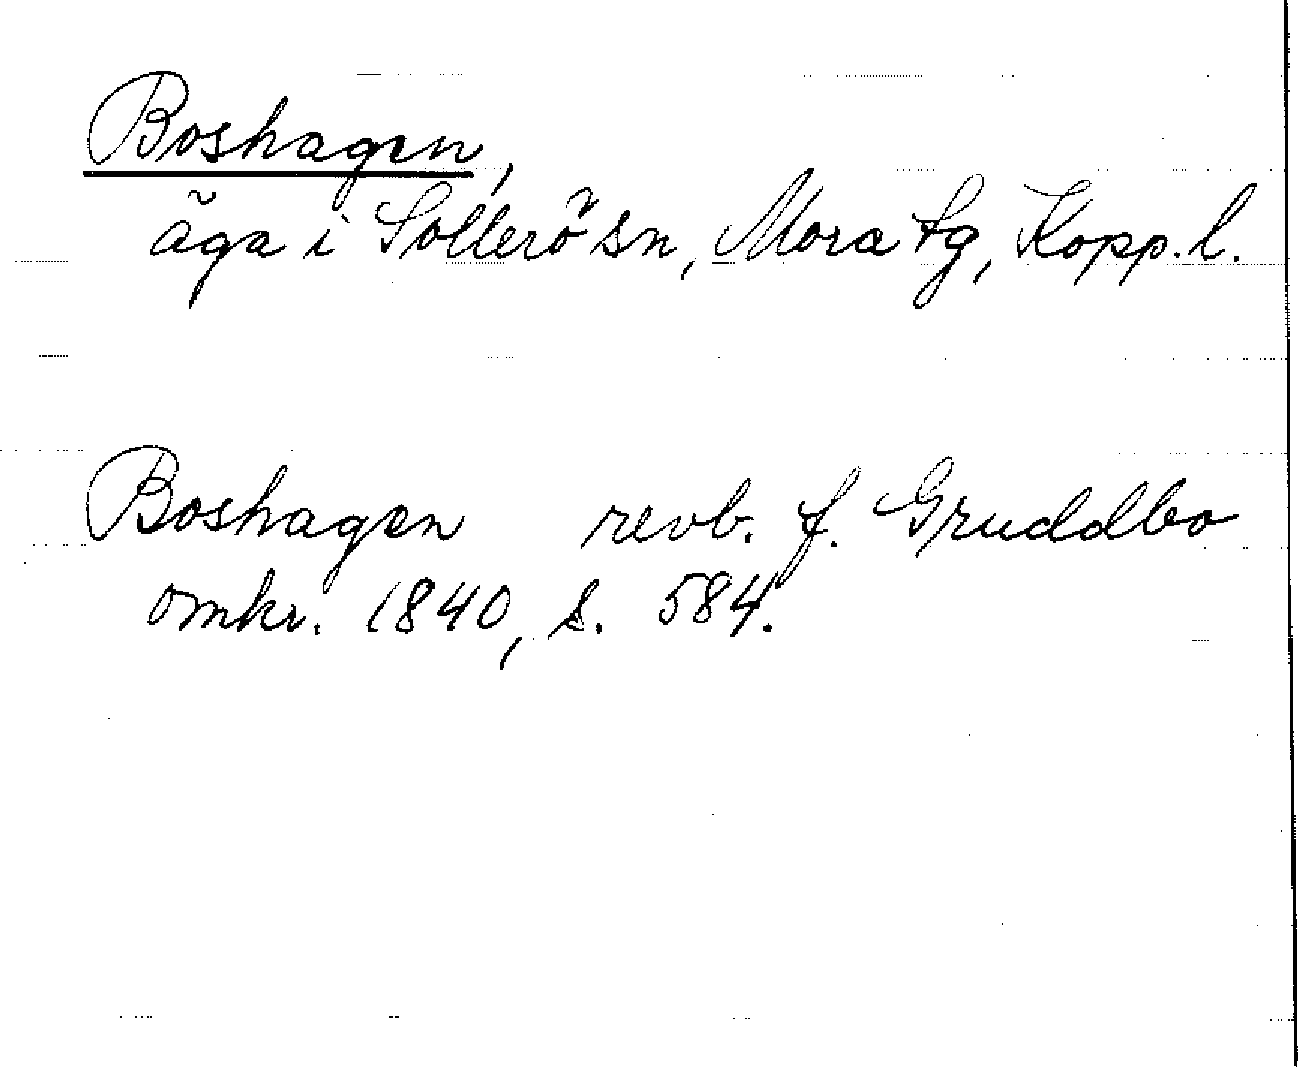 Boshagen,
äga i Sollerö sn, Mora tg, Kopp. l.
Boshagen revb. f. Gruddbo
omkr. 1840, s. 584.